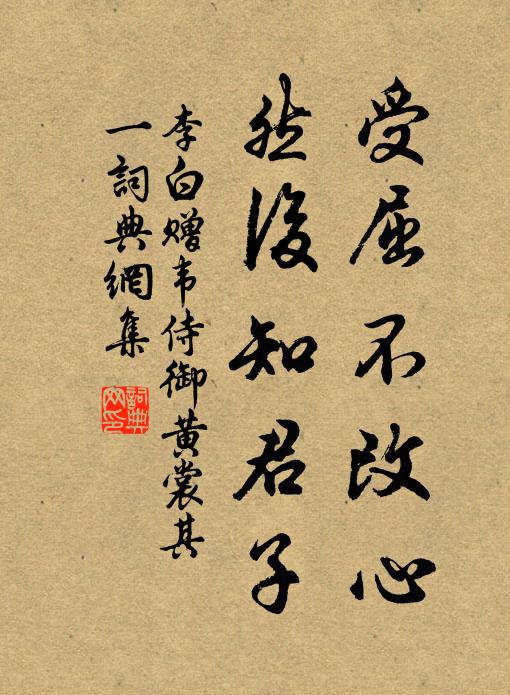 受屈不改心
然後知君子
李白赠韦侍御黄裳其
一詞典網集
詞典
网印